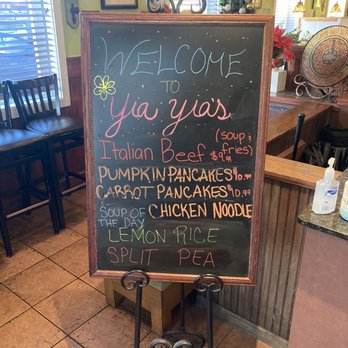 WELCOME
TO
Yia Yia's
Italian Beef (soup & fries) $9.99
PUMPKIN PANCAKES $10.99
CARROT PANCAKES $10.99
SOUP OF THE DAY
CHICKEN NOODLE
LEMON RICE
SPLIT PEA